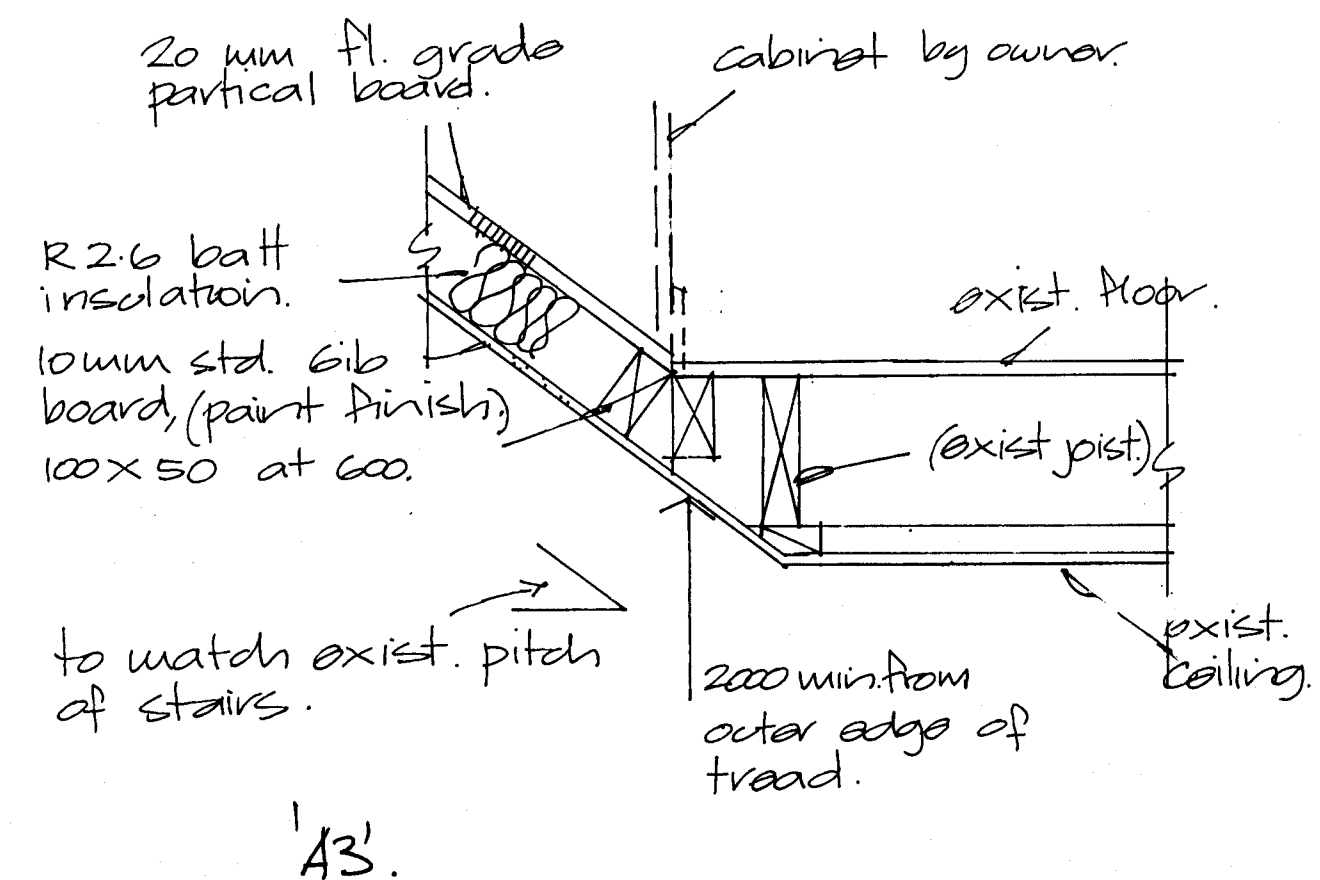 20 mm fl. grade
partical board.
cabinet by owner.
R 2.6 batt
insulation.
exist. floor.
10mm std. Gib
board, (paint finish.)
100 x 50 at 600.
(exist joist.)
to match exist. pitch
of stairs.
2000 min. from
outer edge of
tread.
exist.
ceiling.
'A3'.